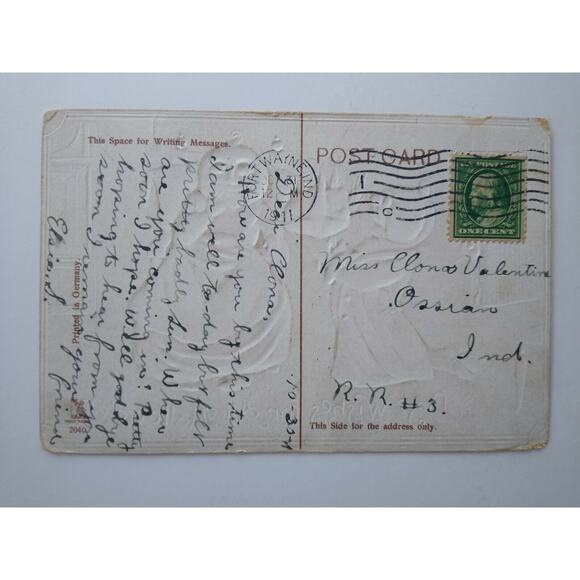 This Space for Writing Messages.
POST CARD
FORT WAYNE, IND.
12 M
1911
1
U.S. POSTAGE
ONE CENT
Miss Clona Valentine
Ossian
Ind.
R. R. #3.
This Side for the address only.
10-30-11
Dear Clona,
How are you by this time
I am well to-day but felt
pretty badly Sun. When
are you coming in? Pretty
soon I hope. Well good bye
hoping to hear from you
soon I remain your friend
Elsie S.
Printed in Germany.
2040